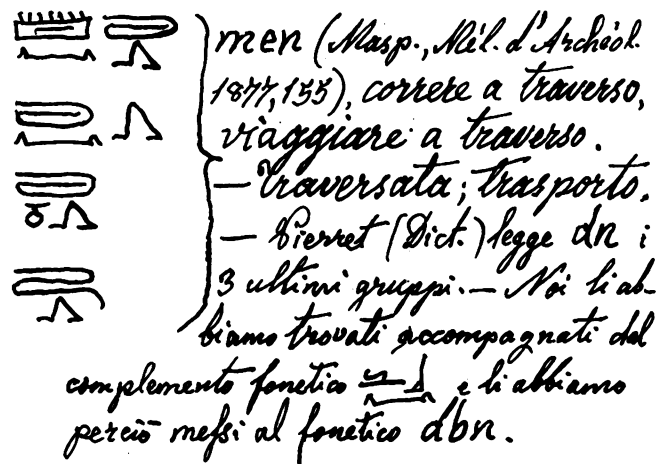 men (Masp., Mél. d'Archéol.
1877, 155), correre a traverso,
viaggiare a traverso.
— Traversata; trasporto.
— Pierret (Dict.) legge dn i
3 ultimi gruppi. — Noi li ab-
biamo trovati accompagnati dal
complemento fonetico e li abbiamo
perciò meſsi al fonetico dbn.